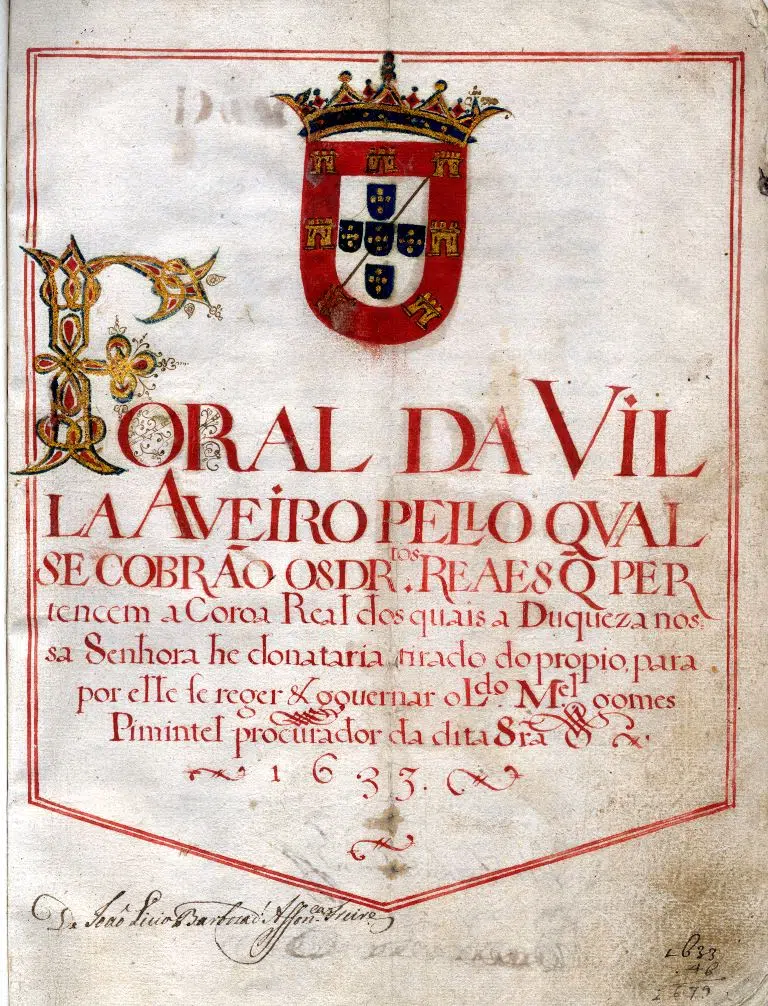 FORAL DA VIL
LA AVEIRO PELLO QVAL
SE COBRÃO OS DR.tos REAES Q̃ PER
tencem a Coroa Real dos quais a Duqueza nos:
sa Senhora he donataria tirado do propio, para
por elle se reger & governar o Ldo. Mel gomes
Pimintel procurador da dita Sra
1633.
De João Licio Barboza d'Affonca Freire
1633
46
1679